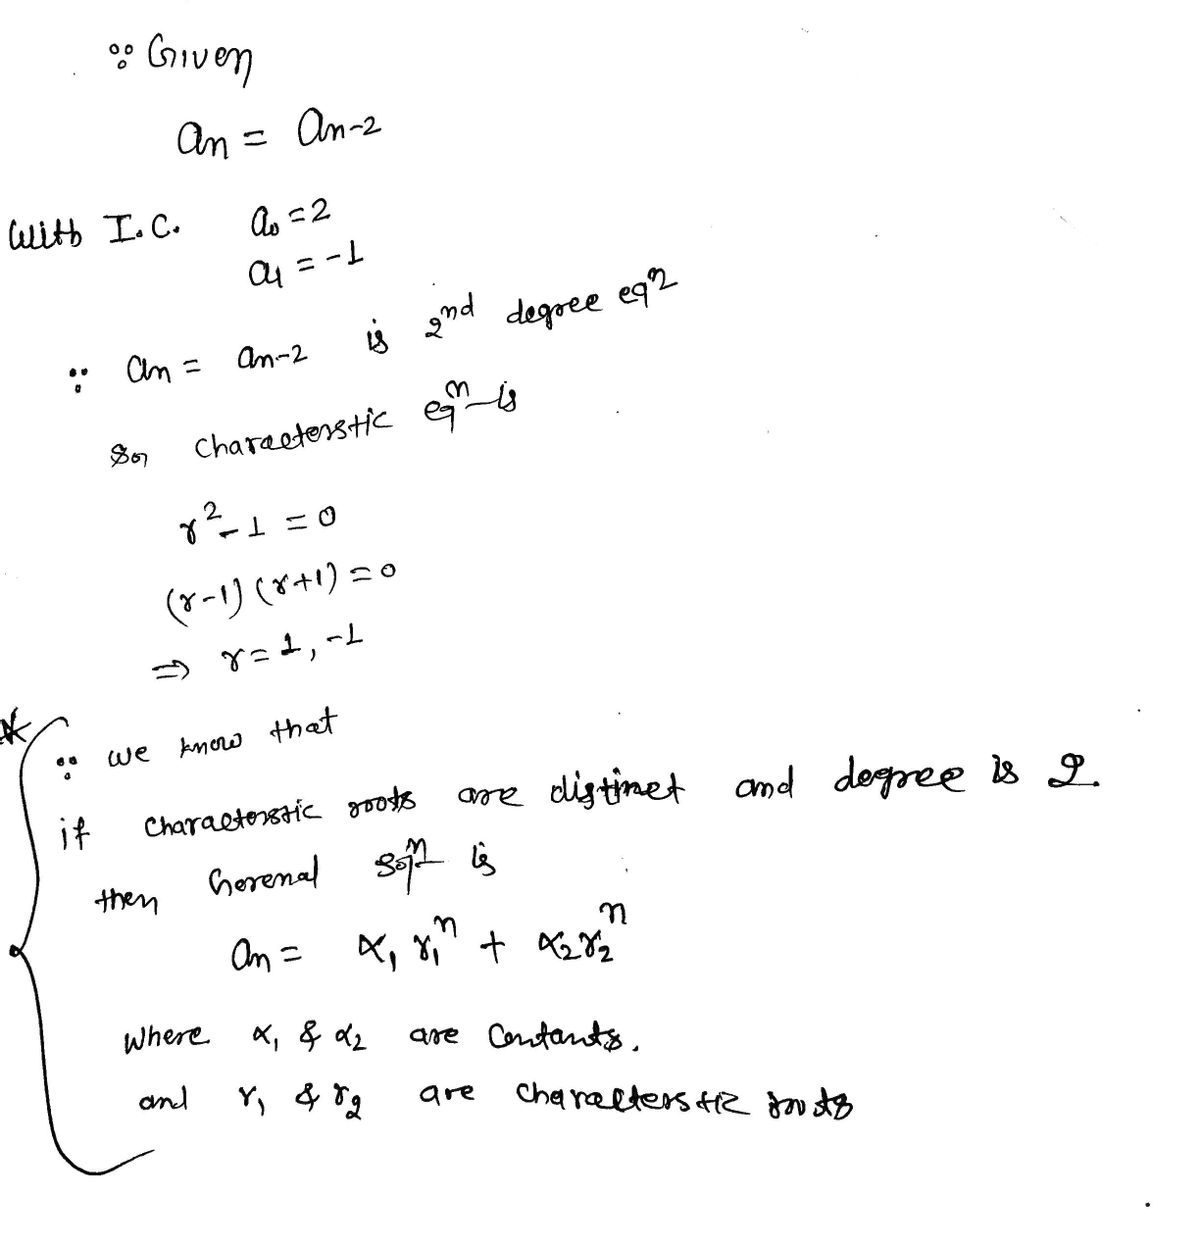 ∵ Given
an = an-2
With I.C. a0 = 2
a1 = -1
∵ an = an-2 is 2nd degree eqn
So, characterstic eqn is
r² - 1 = 0
(r-1) (r+1) = 0
⇒ r = 1, -1
* ∵ we know that
if characterstic roots are distinct and degree is 2.
then Gerenal soln is
an = α1 r1^n + α2 r2^n
where α1 & α2 are Contants.
and r1 & r2 are characterstic roots